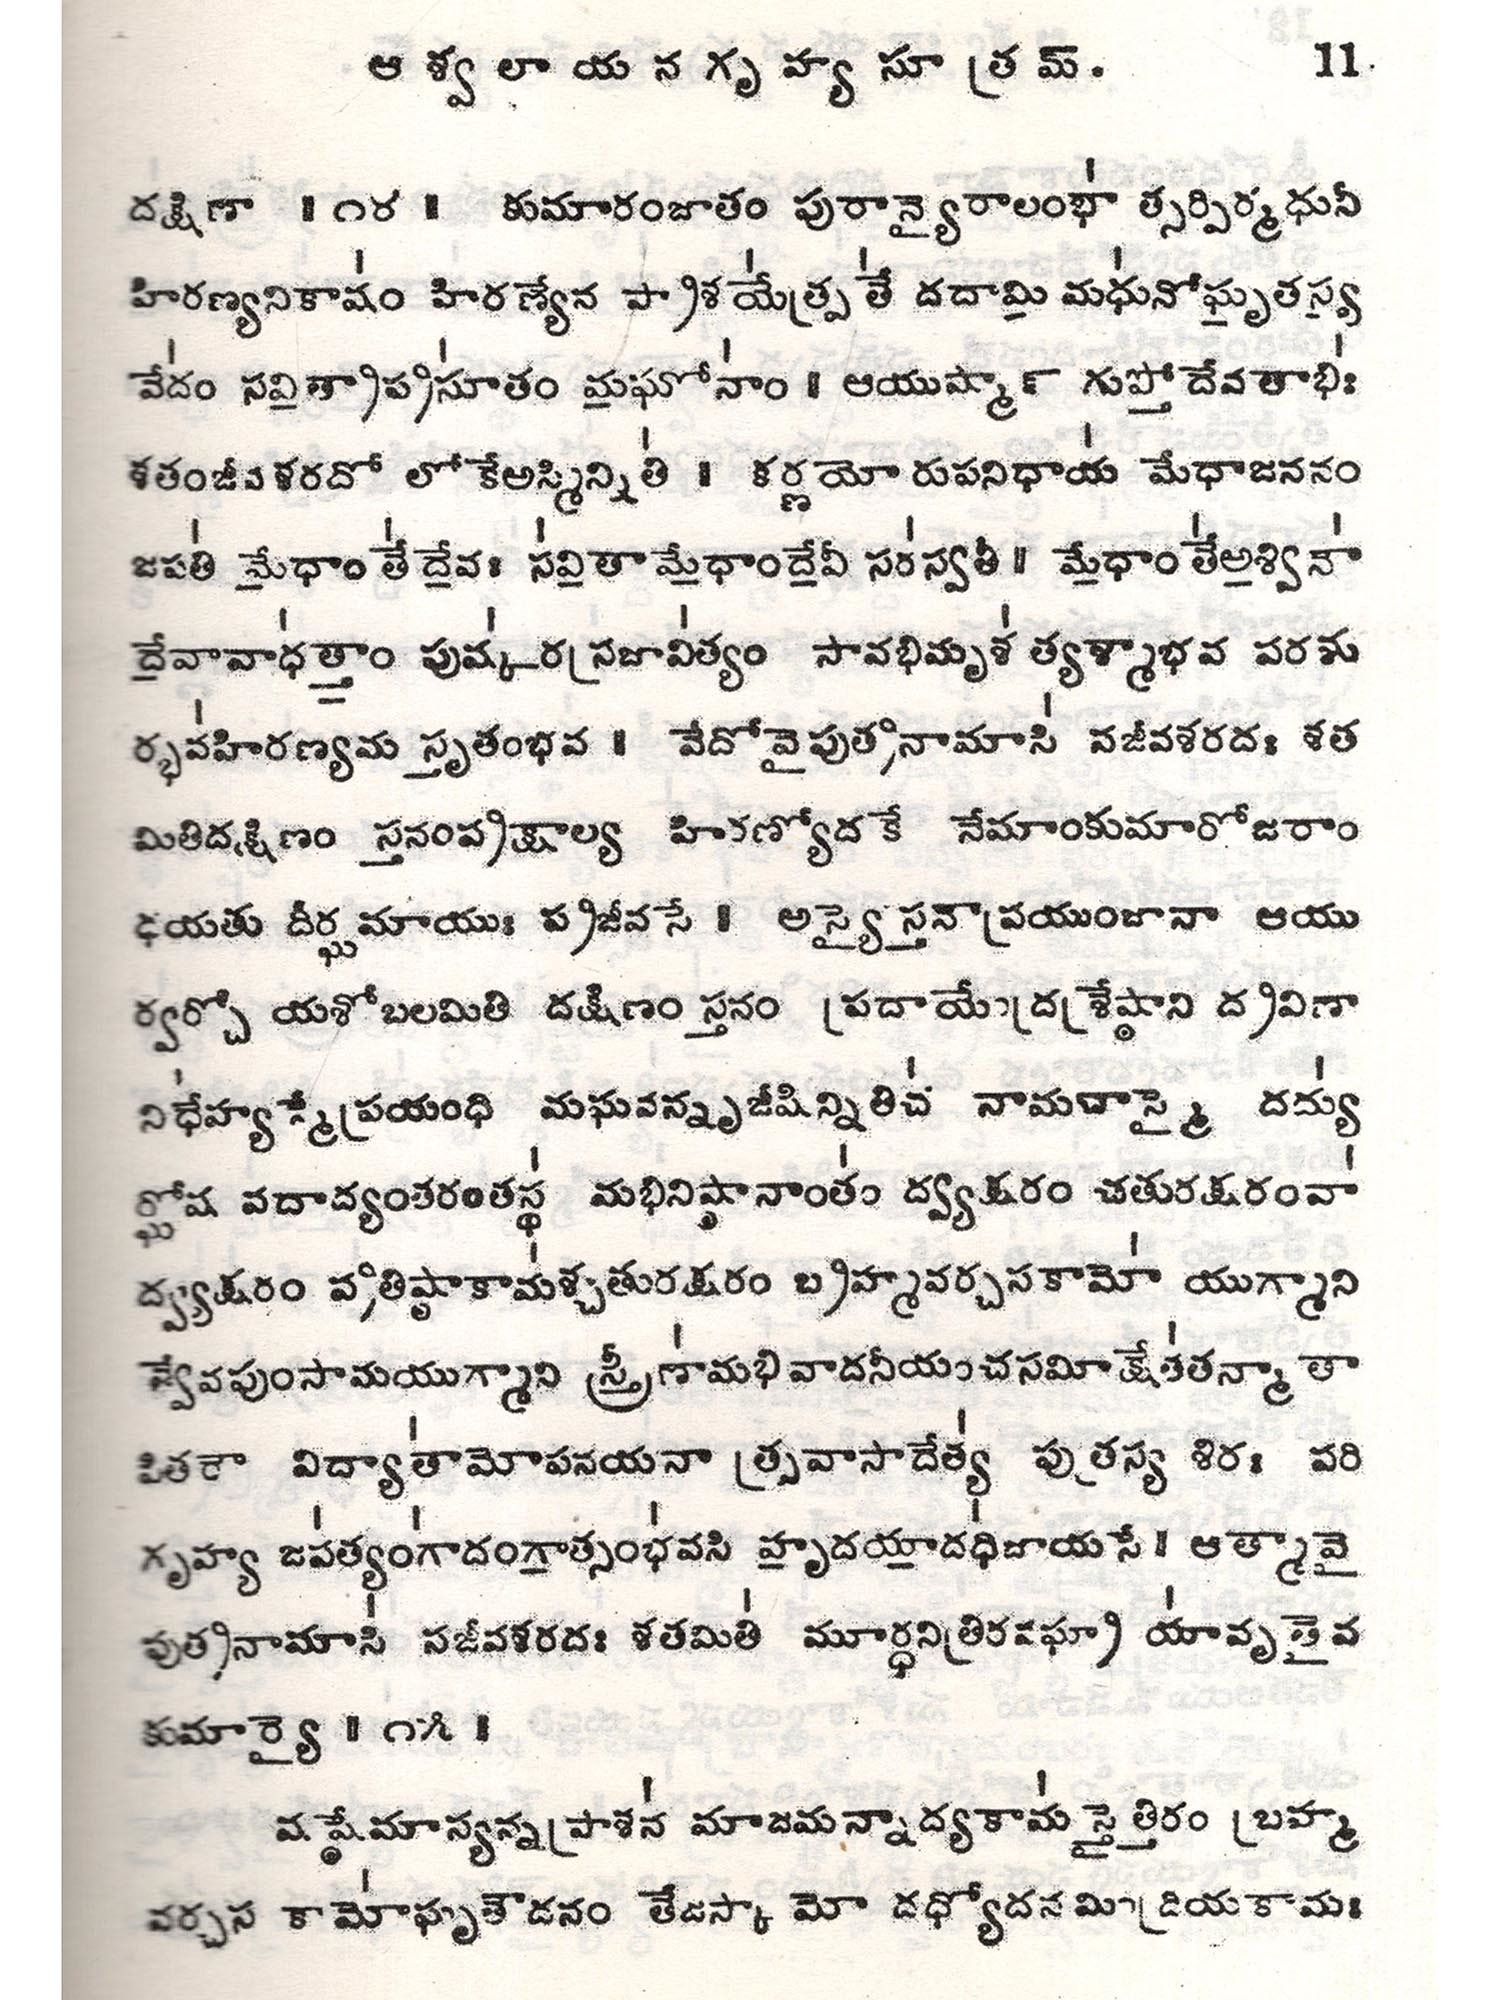 ఆశ్వలాయనగృహ్యసూత్రమ్. 11
దక్షిణా ॥ ౧౪ ॥ కుమారంజాతం పురాన్యైరాలంభా॑ త్సర్పిర్మధునీ
హిరణ్యనికాషం॑ హిరణ్యేన ప్రాశయే॑త్ప్రతే॑ దదామి॒ మధు॑నోఘృ॒తస్య॒
వే॑దం సవి॒త్రాప్రసూ॑తం మ॒ఘోనాం॑ । ఆయుష్మా౯ గుప్తో॒ దేవతాభిః॑
శతంజీవ శరదో లోకేఅస్మిన్నితి॑ । కర్ణయో రుపనిధాయ॑ మేధాజననం
జపతి॑ మే॒ధాం తే॑ దే॒వః స॑వి॒తా మే॒ధాందే॒వీ సర॑స్వతీ । మే॒ధాం తే॑అ॒శ్వినా॑
దే॒వావాధ॑త్తాం॒ పుష్క॑రస్రజావి॑త్యం సావభిమృశ॑ త్యశ్మాభవ పరశు
ర్భవ॑హిరణ్యమ స్తృతంభవ । వేదోవైపుత్రనామాసి॑ సజీవశరదః శత
మితిదక్షిణం స్తనంప్రక్షాల్య హిరణ్యోదకే నేమాంకుమారోజరాం
ధయతు దీర్ఘమాయుః ప్రజీవసే । అస్యైస్తనౌప్రయుంజానా ఆయు
ర్వర్చో యశోబలమితి దక్షిణం స్తనం ప్రదాయేంద్రశ్రేష్ఠాని ద్రవిణా
ని॑ధేహ్యస్మేప్రయంధి మఘవన్నృజీషిన్నితిచ॑ నామచాస్మై దద్యు॑
ర్ఘోష వదాద్యంతరంతస్థ॑ మభినిష్ఠానాంతం॑ ద్వ్యక్షరం చతురక్షరంవా॑
ద్వ్యక్షరం ప్రతిష్ఠాకామ॑శ్చతురక్షరం బ్రహ్మవర్చసకామో॑ యుగ్మాని
త్వేవపుంసామయుగ్మాని స్త్రీణా॑మభివాదనీయంచసమీక్షేత॑తన్మాతా
పితరౌ విద్యాతా॑మోపనయనా త్ప్రవాసాదేత్య॑ పుత్రస్య శిరః పరి
గృహ్య జప॑త్యం॑గాదంగా॒త్సంభ॑వసి హృ॒దయా॒దధి॑జాయసే । ఆత్మావై
పుత్రనామాసి॑ సజీవశరదః శతమితి॑ మూర్ధనిత్రిరవఘ్రా యా॑వృతైవ
కుమార్యై ॥ ౧౫ ॥
షష్ఠేమాస్యన్నప్రాశన॑ మాజమన్నాద్యకామ॑ స్తైత్తిరం బ్రహ్మ
వర్చస కామో॑ఘృతౌదనం తేజస్కా మో దధ్యోదనమింద్రియకామః